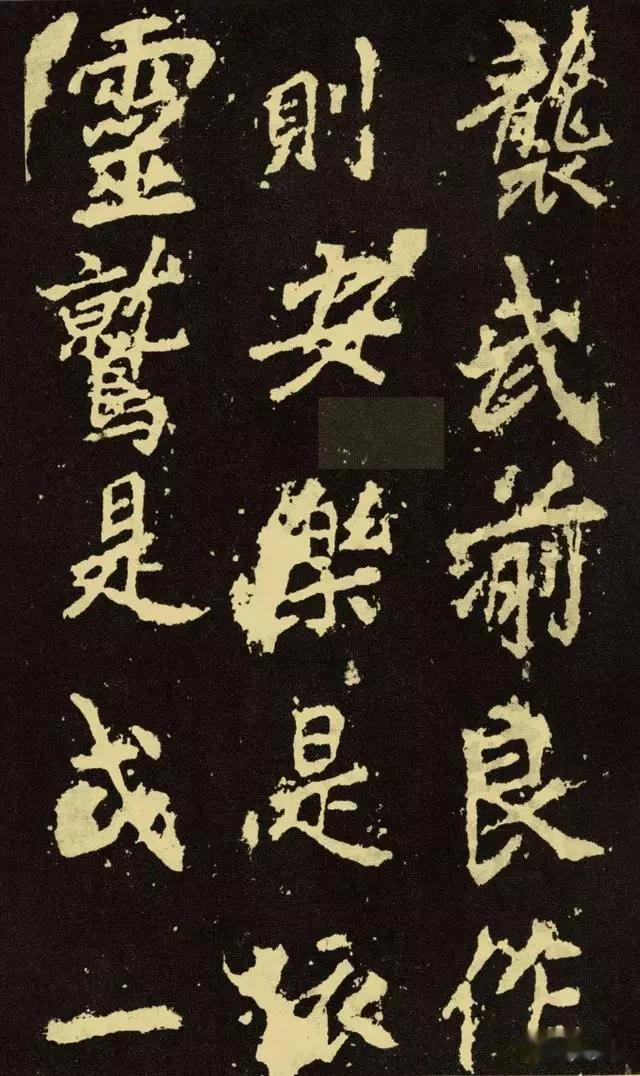 襲武前良作
則安樂是依
靈鷲是一